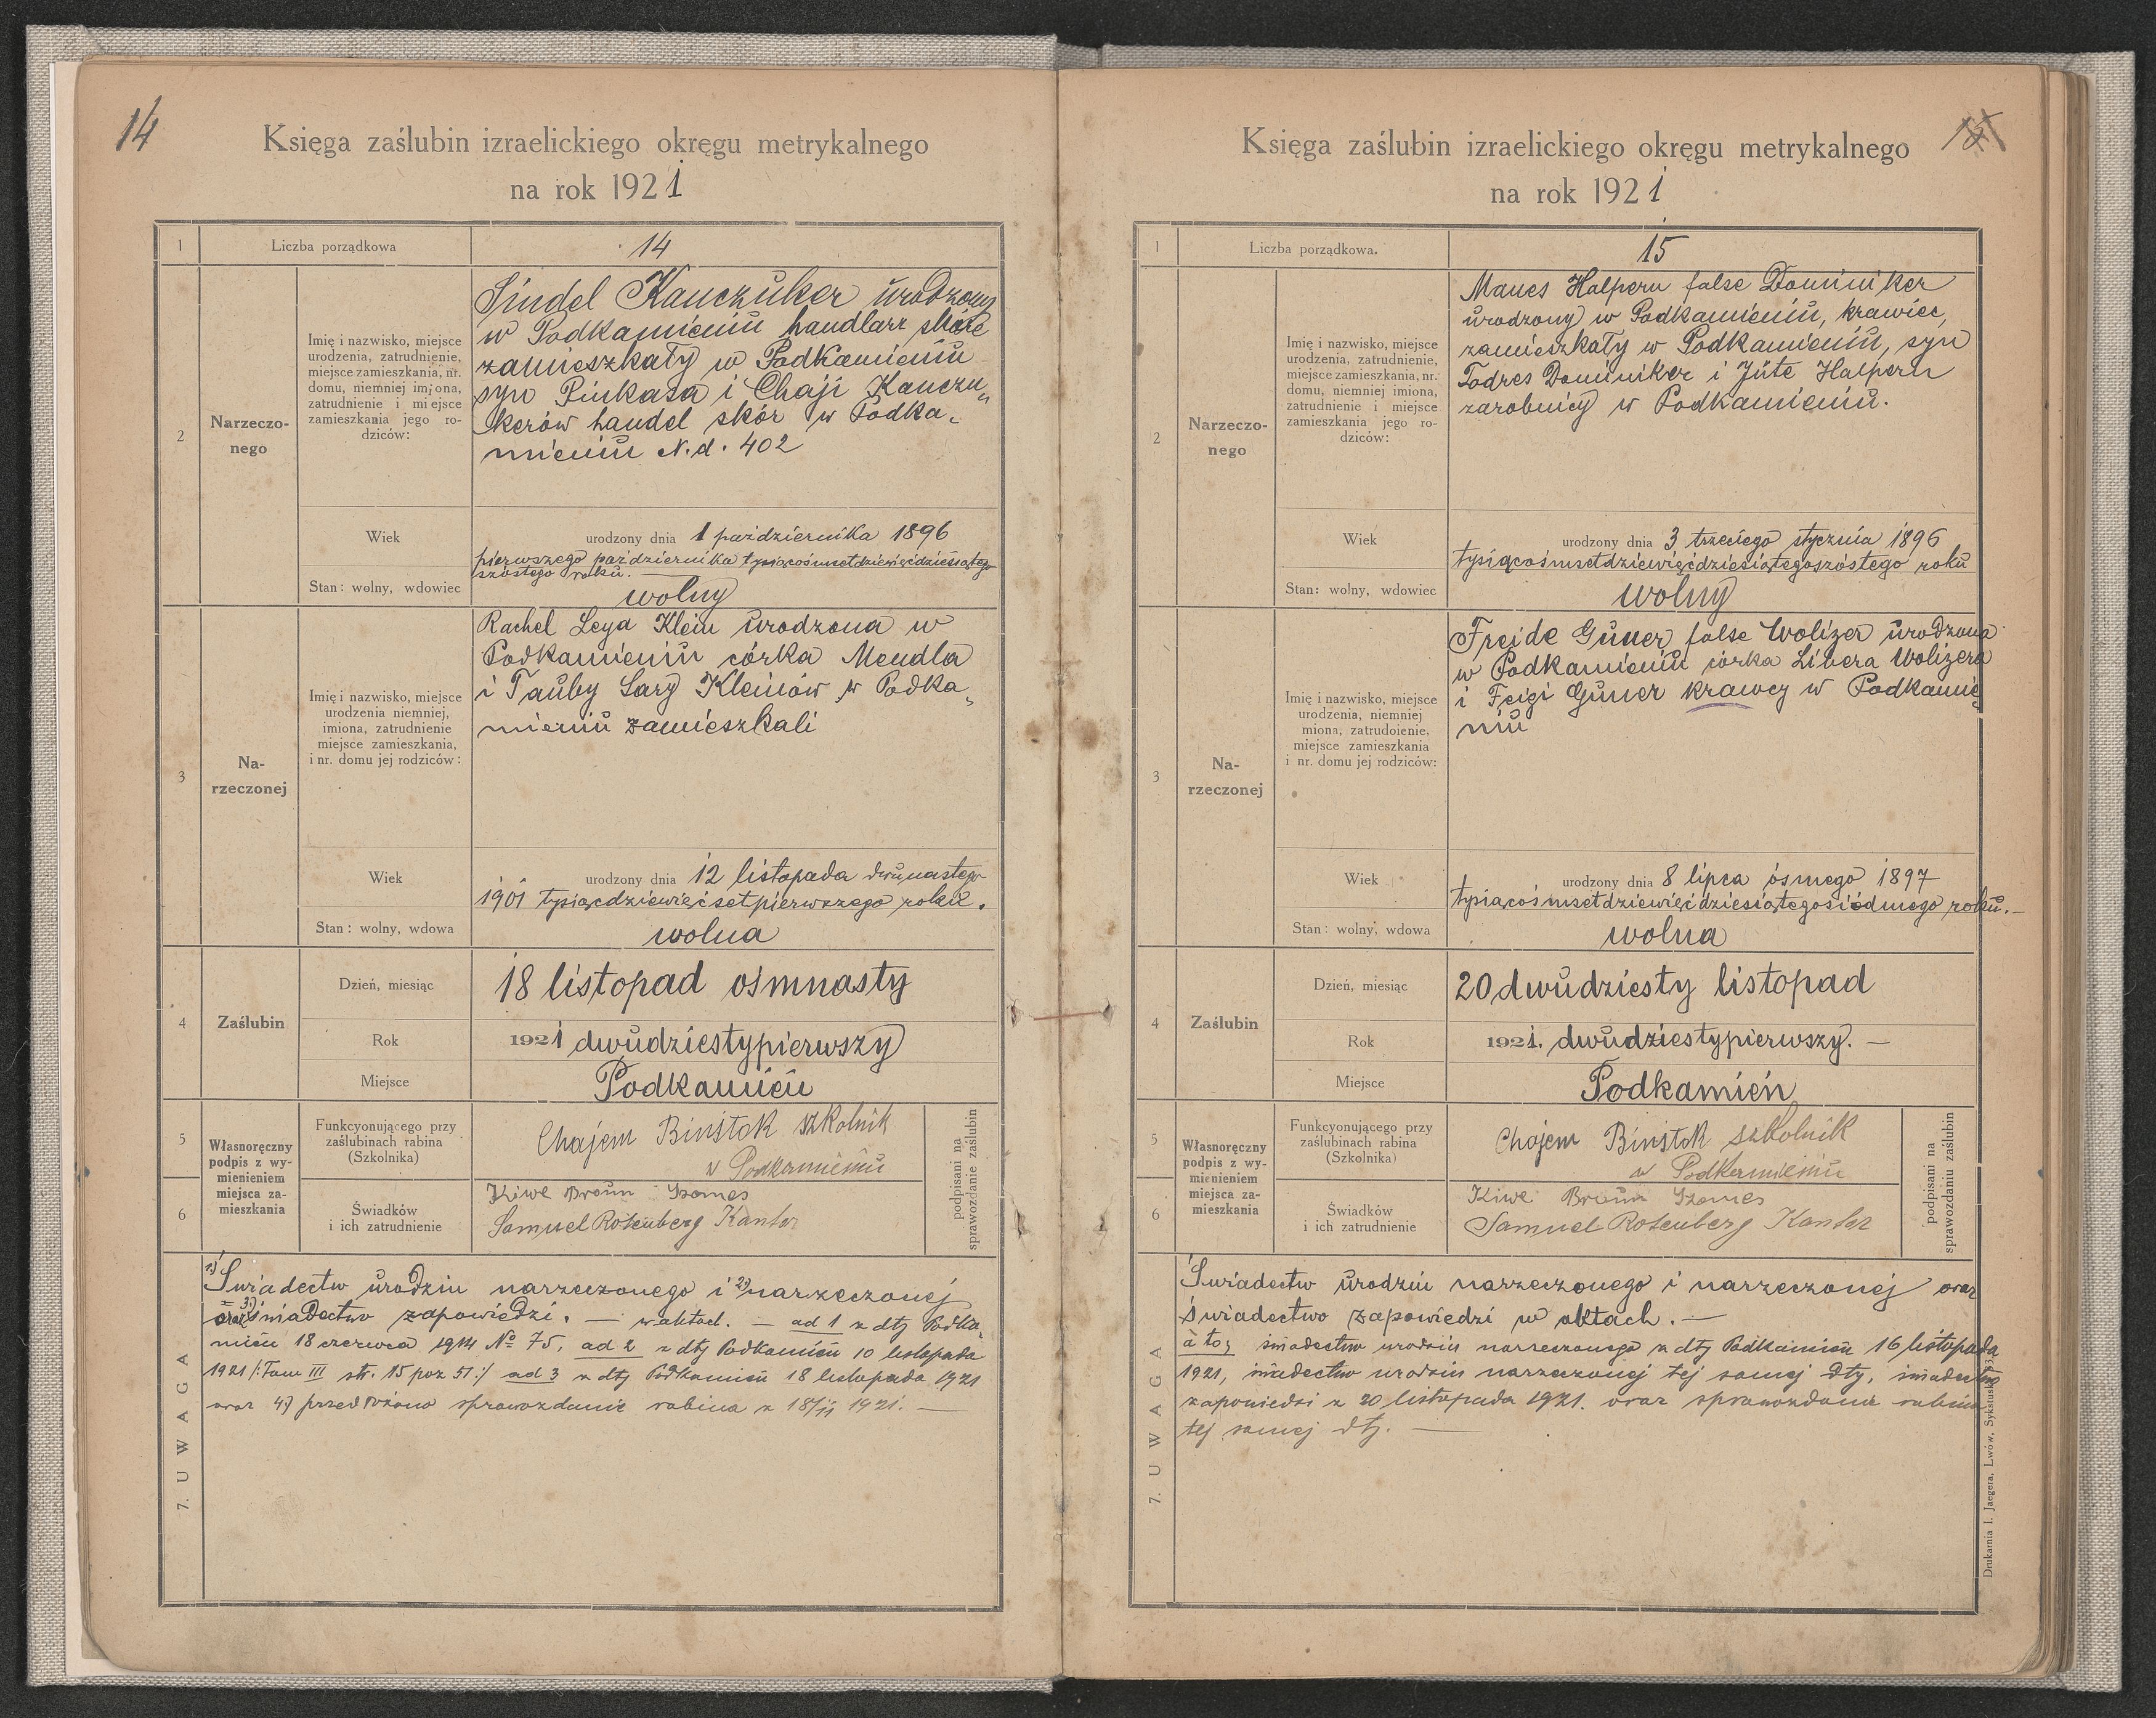 14
Księga zaślubin izraelickiego okręgu metrykalnego
na rok 1921
1
Liczba porządkowa
14
2
Narzeczo-
nego
Imię i nazwisko, miejsce
urodzenia, zatrudnienie,
miejsce zamieszkania, nr.
domu, niemniej imiona,
zatrudnienie i miejsce
zamieszkania jego ro-
dziców:
Sindel Kauczuker urodzony
w Podkamieniu handlarz skóre
zamieszkały w Podkamieniu
syn Pinkasa i Chaji Kauczu„
kerów handel skór w Podka„
mieniu N.d. 402
Wiek
urodzony dnia 1 października 1896
pierwszego października tysiącośmsetdziewięćdziesiątego
szóstego roku.
Stan: wolny, wdowiec
wolny
3
Na-
rzeczonej
Imię i nazwisko, miejsce
urodzenia niemniej,
imiona, zatrudnienie
miejsce zamieszkania,
i nr. domu jej rodziców:
Rachel Leya Klein urodzona w
Podkamieniu córka Mendla
i Tauby Sary Kleinów w Podka„
mieniu zamieszkali
Wiek
urodzony dnia 12 listopada dwunastego
1901 tysiącdziewięćsetpierwszego roku.
Stan: wolny, wdowa
wolna
4
Zaślubin
Dzień, miesiąc
18 listopad ośmnasty
Rok
1921 dwudziestypierwszy
Miejsce
Podkamień
5
6
Własnoręczny
podpis z wy-
mienieniem
miejsca za-
mieszkania
Funkcyonującego przy
zaślubinach rabina
(Szkolnika)
Chajem Binstok szkolnik
w Podkamieniu
Świadków
i ich zatrudnienie
Kiwe Braun Szames
Samuel Rotenberg Kantor
podpisani na
sprawozdanie zaślubin
7. UWAGA
1) Świadectw urodzin narzeczonego i 2) narzeczonej
oraz 3) świadectwo zapowiedzi. — w aktach. — ad 1 z dty Podka„
mień 18 czerwca 1914 No 75, ad 2 z dty Podkamień 10 listopada
1921 /: Tom III str. 15 poz 51 :/ ad 3 z dty Podkamień 18 listopada 1921
oraz 4) przedłożono sprawozdanie rabina z 18/11 1921. —
15
Księga zaślubin izraelickiego okręgu metrykalnego
na rok 1921
1
Liczba porządkowa.
15
2
Narzeczo-
nego
Imię i nazwisko, miejsce
urodzenia, zatrudnienie,
miejsce zamieszkania, nr.
domu, niemniej imiona,
zatrudnienie i miejsce
zamieszkania jego ro-
dziców:
Manes Halpern false Dominiker
urodzony w Podkamieniu, krawiec,
zamieszkały w Podkamieniu, syn
Todres Dominiker i Jute Halpern
zarobnicy w Podkamieniu.
Wiek
urodzony dnia 3 trzeciego stycznia 1896
tysiącośmsetdziewięćdziesiątegoszóstego roku
Stan: wolny, wdowiec
wolny
3
Na-
rzeczonej
Imię i nazwisko, miejsce
urodzenia, niemniej
miona, zatrudoienie,
miejsce zamieszkania
i nr. domu jej rodziców:
Freide Guner false Wolizer urodzona
w Podkamieniu córka Libera Wolizera
i Feigi Guner krawcy w Podkamie„
niu
Wiek
urodzony dnia 8 lipca ósmego 1897
tysiącośmsetdziewięćdziesiątegosiódmego roku. —
Stan: wolny, wdowa
wolna
4
Zaślubin
Dzień, miesiąc
20 dwudziesty listopad
Rok
1921. dwudziestypierwszy. —
Miejsce
Podkamień
5
6
Własnoręczny
podpis z wy-
mienieniem
miejsca za-
mieszkania
Funkcyonującego przy
zaślubinach rabina
(Szkolnika)
Chajem Binstok szkolnik
w Podkamieniu
Świadków
i ich zatrudnienie
Kiwe Braun Szames
Samuel Rotenberg Kantor
podpisani na
sprawozdaniu zaślubin
7. UWAGA
Świadectw urodzin narzeczonego i narzeczonej oraz
świadectwo zapowiedzi w aktach. —
a to: świadectwo urodzin narzeczonego z dty Podkamień 16 listopada
1921, świadectwo urodzin narzeczonej tej samej dty, świadectwo
zapowiedzi z 20 listopada 1921. oraz sprawozdanie rabina
tej samej dty. —
Drukarnia I. Jaegera, Lwów, Sykstuska